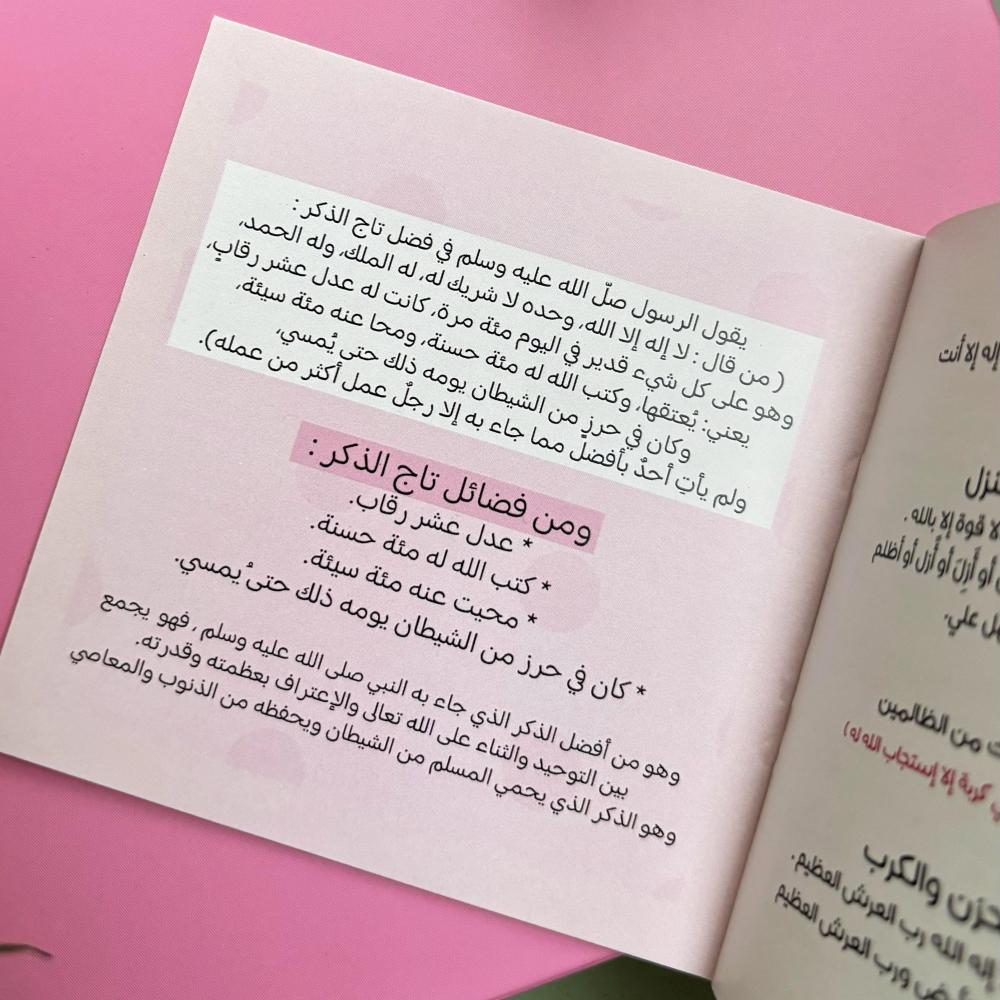 يقول الرسول صلّ الله عليه وسلم في فضل تاج الذكر :
( من قال : لا إله إلا الله، وحده لا شريك له، له الملك، وله الحمد،
وهو على كل شيء قدير في اليوم مئة مرة، كانت له عدل عشر رقابٍ،
يعني: يُعتقها، وكتب الله له مئة حسنة، ومحا عنه مئة سيئة،
وكان في حرزٍ من الشيطان يومه ذلك حتى يُمسي،
ولم يأتِ أحدٌ بأفضلَ مما جاء به إلا رجلٌ عمل أكثر من عمله).
ومن فضائل تاج الذكر :
* عدل عشر رقاب.
* كتب الله له مئة حسنة.
* محيت عنه مئة سيئة.
* كان في حرز من الشيطان يومه ذلك حتىُ يمسي.
وهو من أفضل الذكر الذي جاء به النبي صلى الله عليه وسلم , فهو يجمع
بين التوحيد والثناء على الله تعالى والإعتراف بعظمته وقدرته.
وهو الذكر الذي يحمي المسلم من الشيطان ويحفظه من الذنوب والمعاصي
إله إلا أنت
قوة إلا بالله .
أو أَزِلَ أو أُزل أو أظلم
علي.
من الظالمين
كربة إلا إستجاب الله له )
والكرب
إله الله رب العرش العظيم.
ورب العرش العظيم